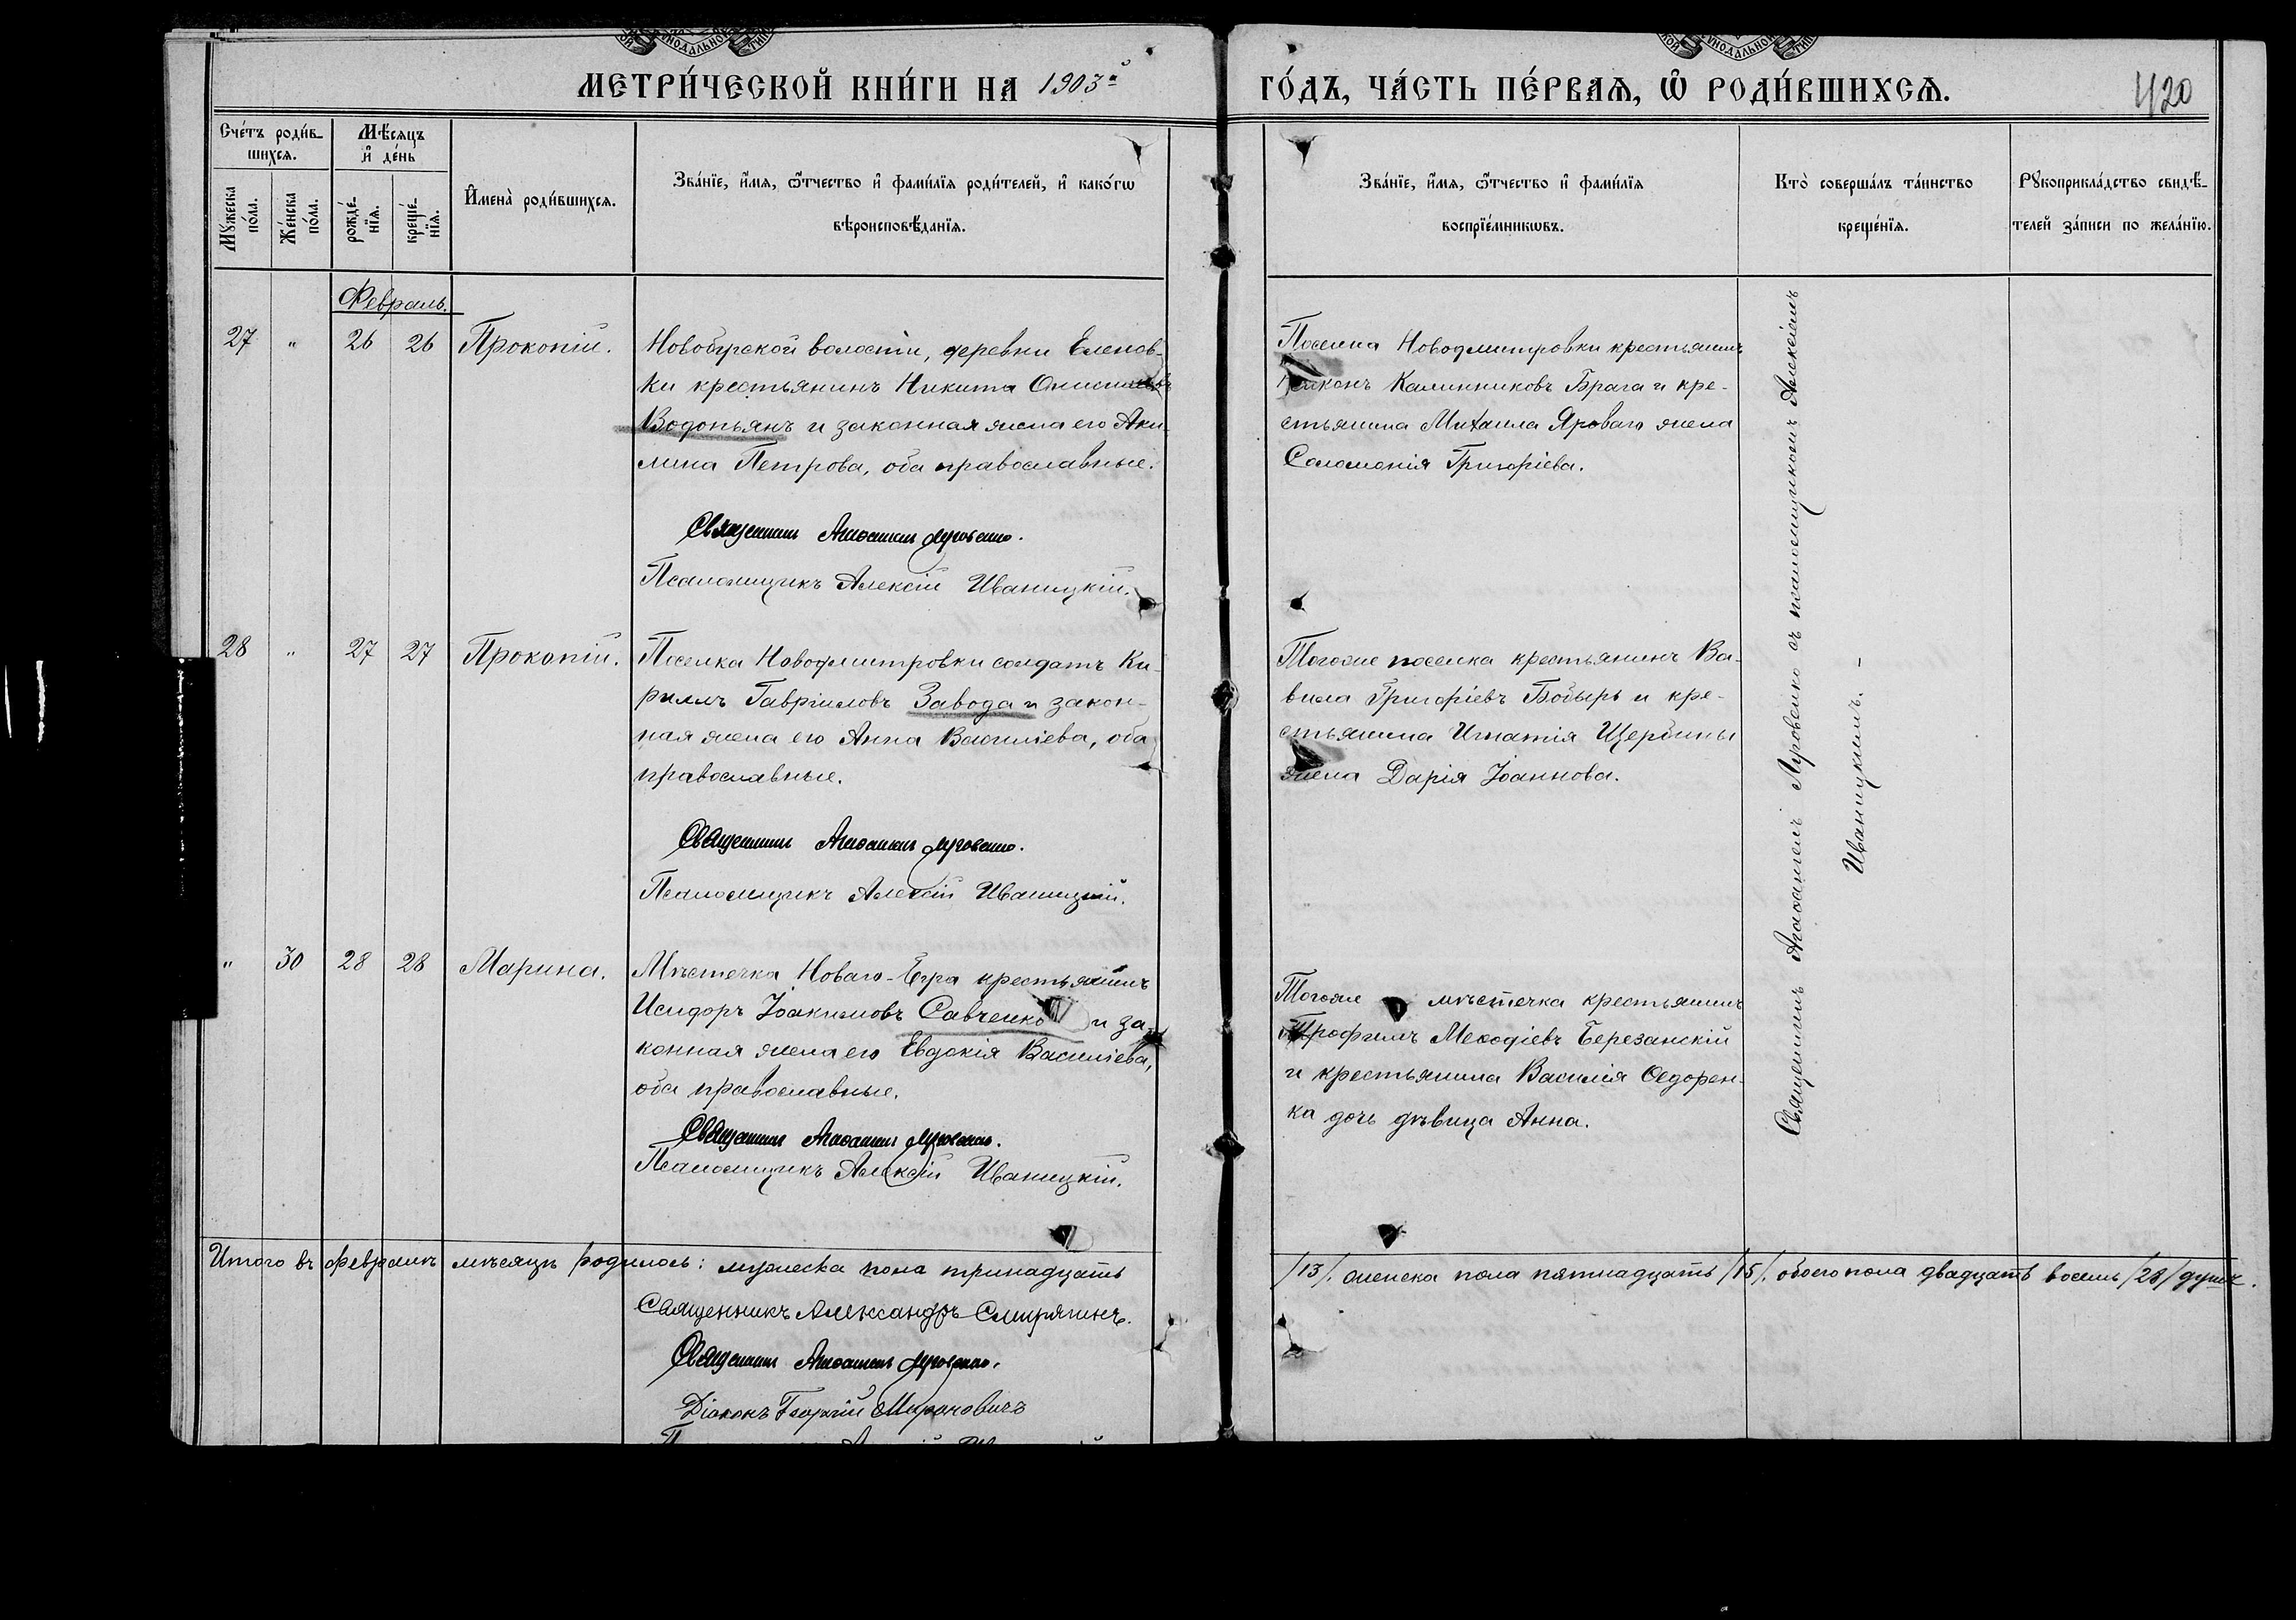 МЕТРИ́ЧЕСКОЙ КНИ́ГИ НА 1903й ГО́ДЪ, ЧА́СТЬ ПЕ́РВАѦ, Ѡ РОДИ́ВШИХСѦ.
420
Сче́тъ роди́в-
шихсѧ.
Мѣ́сѧцъ
и҆ де́нь
Мꙋ́жеска
по́ла.
Же́нска
по́ла.
рожде́-
нїѧ.
креще́-
нїѧ.
И҆мена̀ роди́вшихсѧ.
Зва́нїе, и҆́мѧ, ѻ҆́тчество и҆ фами́лїѧ роди́телей, и҆ како́гѡ
вѣроисповѣ́данїѧ.
Зва́нїе, и҆́мѧ, ѻ҆́тчество и҆ фами́лїѧ
воспрїе́мникѡвъ.
Кто̀ соверша́лъ та́инство
креще́нїѧ.
Рꙋкоприкла́дство свидѣ́-
телей за́писи по жела́нїю.
Февраль.
27 " 26 26 Прокопій.
Новобугской волости, деревни Еленов-
ки крестьянинъ Никита
Водопьянъ и законная жена его Аки-
лина Петрова, оба православные.
Священникъ Агафангелъ Луговенко.
Псаломщикъ Алексій Иваницкій.
Поселка Новодмитровки крестьянинъ
Калинниковъ Брага и кре-
стьянина Михаила Яроваго жена
Соломонія Григоріева.
28 " 27 27 Прокопій.
Поселка Новодмитровки солдатъ Ки-
риллъ Гавріиловъ Завода и закон-
ная жена его Анна Василіева, оба
православные.
Священникъ Агафангелъ Луговенко.
Псаломщикъ Алексій Иваницкій.
Тогоже поселка крестьянинъ Ва-
вила Григоріевъ Бобырь и кре-
стьянина Игнатія Щербины
жена Дарія Іоаннова.
" 30 28 28 Марина.
Мѣстечка Новаго-Буга крестьянинъ
Исидоръ Іоакимовъ Савченко и за-
конная жена его Евдокія Василіева,
оба православные.
Священникъ Агафангелъ Луговенко.
Псаломщикъ Алексій Иваницкій.
Тогоже мѣстечка крестьянинъ
Трофимъ Меѳодіевъ Березанскій
и крестьянина Василія Ѳедорен-
ка дочь дѣвица Анна.
Священникъ Агафангелъ Луговенко съ псаломщикомъ Алексіемъ
Иваницкимъ. –
Итого въ февралѣ мѣсяцѣ родилось: мужеска пола тринадцать /13/. женска пола пятнадцать /15/. обоего пола двадцать восемь /28/ душъ.
Священникъ Александръ Смирягинъ.
Священникъ Агафангелъ Луговенко.
Діаконъ Георгій Мироновичъ